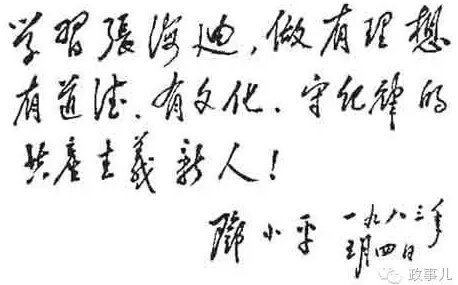 学習張海迪，做有理想
有道德、有文化、守纪律的
共產主義新人！
鄧小平 一九八三年
五月四日
政事儿